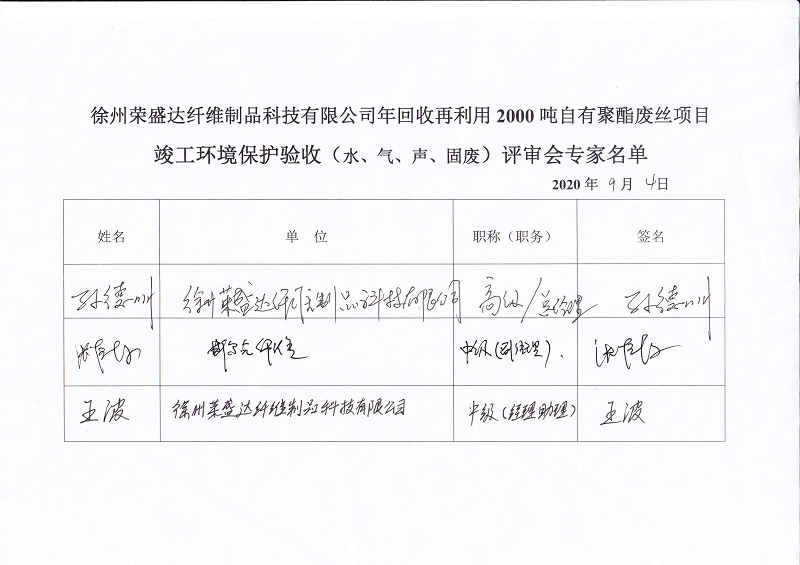 徐州荣盛达纤维制品科技有限公司年回收再利用 2000 吨自有聚酯废丝项目
竣工环境保护验收（水、气、声、固废）评审会专家名单
2020 年 9 月 4 日
姓名 单 位 职称（职务） 签名
孙德川 徐州荣盛达纤维制品科技有限公司 高级/总经理 孙德川
中级（副经理）.
王波 徐州荣盛达纤维制品科技有限公司 中级（经理助理） 王波